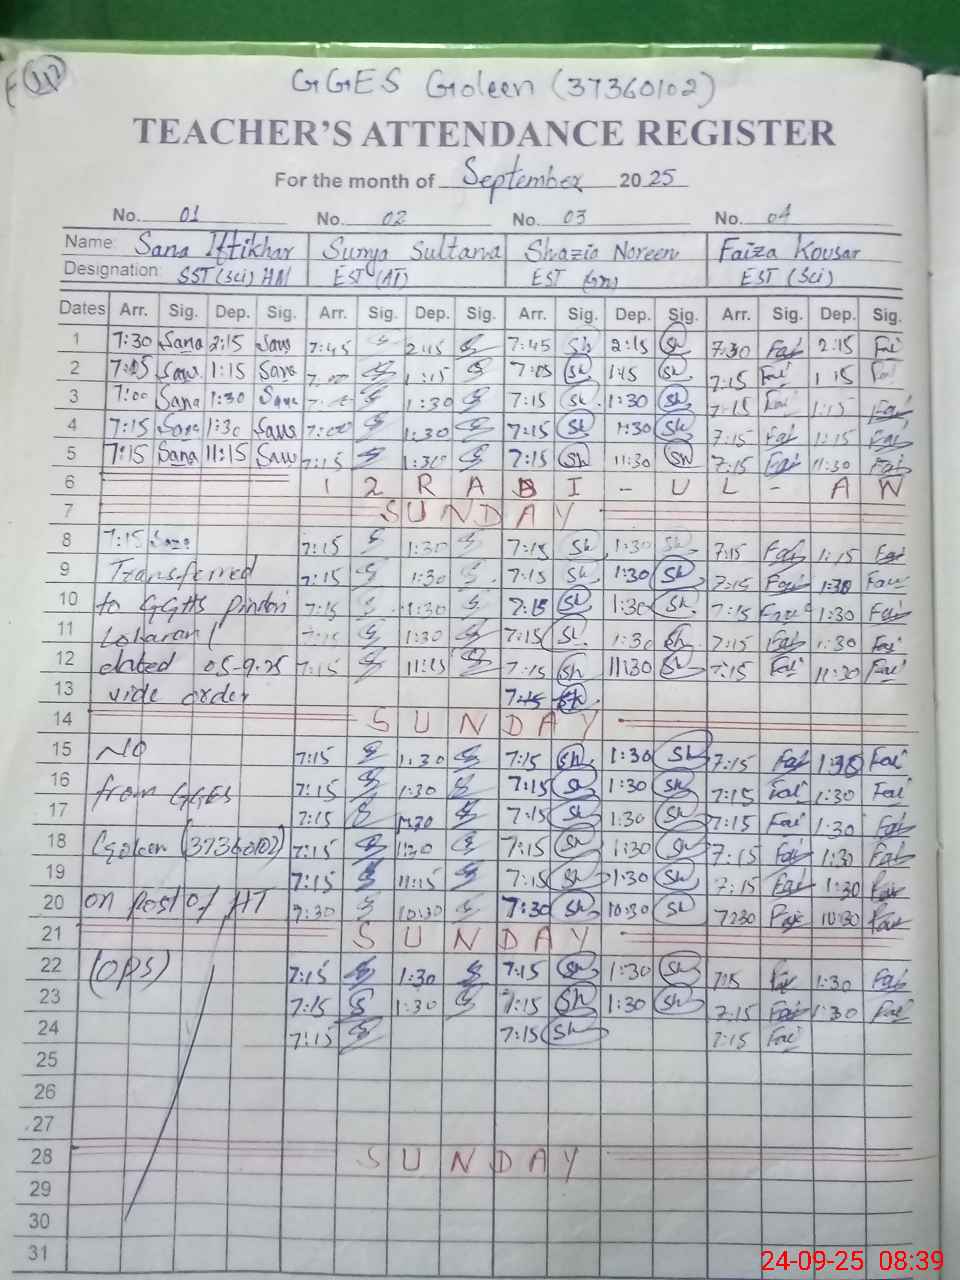 GGES Goleen (37360102)
TEACHER'S ATTENDANCE REGISTER
For the month of September 2025
No. 01 No. 02 No. 03 No. 04
Name: Sana Iftikhar Surya Sultana Shazia Noreen Faiza Kousar
Designation: SST (Sci) HM EST (AT) EST EST (Sci)
Dates Arr. Sig. Dep. Sig. Arr. Sig. Dep. Sig. Arr. Sig. Dep. Sig. Arr. Sig. Dep. Sig.
1 7:30 Sana 2:15 Sana 7:45 2:15 7:45 Sh 2:15 Sh 7:30 Fai 2:15 Fai
2 7:05 Sana 1:15 Sana 7:00 1:15 7:05 Sh 1:15 Sh 7:15 Fai 1:15 Fai
3 7:00 Sana 1:30 Sana 1:30 7:15 Sh 1:30 Sh 7:15 Fai 1:15 Fai
4 7:15 Sana 1:30 Sana 7:00 1:30 7:15 Sh 1:30 Sh 7:15 Fai 1:15 Fai
5 7:15 Sana 11:15 Sana 7:15 7:15 Sh 11:30 Sh 7:15 Fai 11:30 Fai
6 12 RABI - UL - AW
7 SUNDAY
8 7:15 Sana 7:15 1:30 7:15 Sh 1:30 Sh 7:15 Fai 1:15 Fai
9 Transferred 7:15 1:30 7:15 Sh 1:30 Sh 7:15 Fai 1:30 Fai
10 to GGHS 7:15 1:30 7:15 Sh 1:30 Sh 7:15 Fai 1:30 Fai
11 7:15 1:30 7:15 Sh 1:30 Sh 7:15 Fai 1:30 Fai
12 dated 05-9-25 7:15 11:15 7:15 Sh 11:30 Sh 7:15 Fai 11:30 Fai
13 vide order 7:15 Sh
14 SUNDAY
15 NO 7:15 1:30 7:15 Sh 1:30 Sh 7:15 Fai 1:30 Fai
16 from GGES 7:15 1:30 7:15 Sh 1:30 Sh 7:15 Fai 1:30 Fai
17 7:15 1:30 7:15 Sh 1:30 Sh 7:15 Fai 1:30 Fai
18 Goleen (37360102) 7:15 1:30 7:15 Sh 1:30 Sh 7:15 Fai 1:30 Fai
19 7:15 11:15 7:15 Sh 1:30 Sh 7:15 Fai 1:30 Fai
20 on post of HT 7:30 10:30 7:30 Sh 10:30 Sh 7:30 Fai 10:30 Fai
21 SUNDAY
22 (OPS) 7:15 1:30 7:15 Sh 1:30 Sh 7:15 Fai 1:30 Fai
23 7:15 1:30 7:15 Sh 1:30 Sh 7:15 Fai 1:30 Fai
24 7:15 7:15 Sh 7:15 Fai
25
26
27
28 SUNDAY
29
30
31
24-09-25 08:39